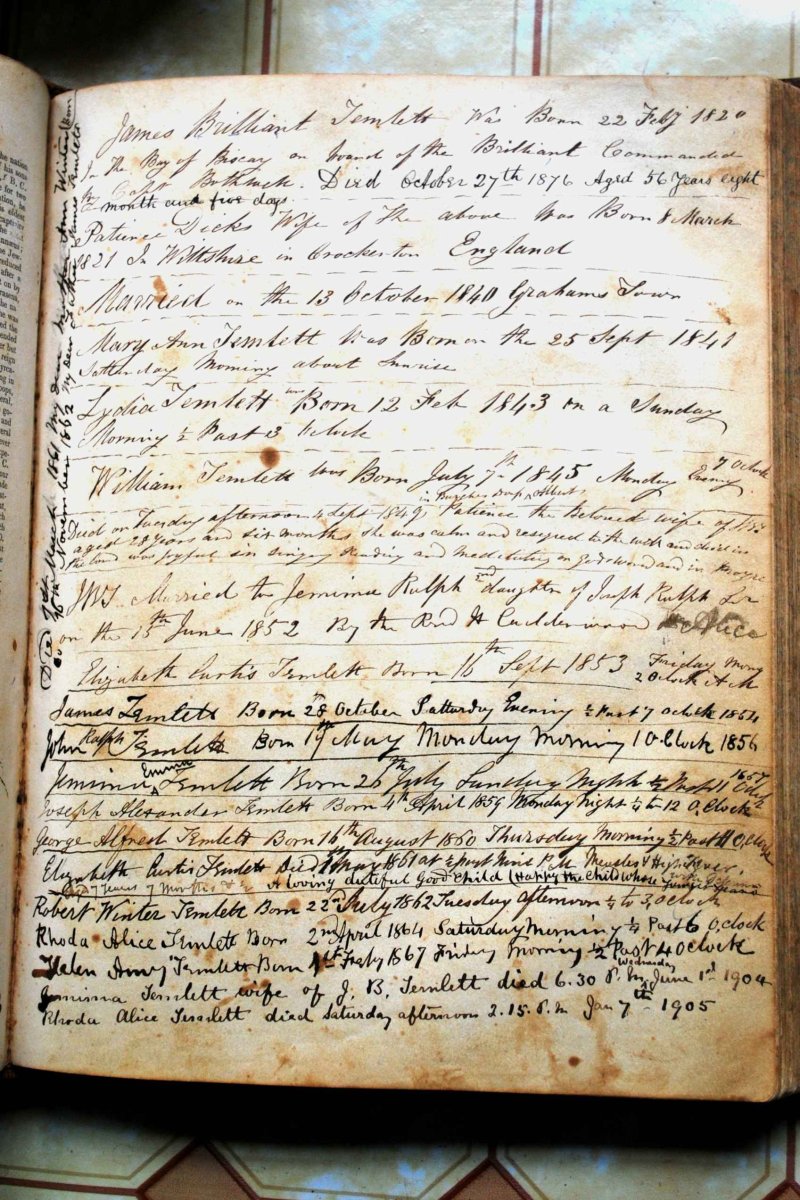 James Brilliant Temlett Was Born 22 Feby 1820
In the Bay of Biscay on board of the Brilliant Commanded
by Capt Died October 27th 1876 Aged 56 Years eight
month and five days.
Patience Dicks Wife of the above Was Born 8 March
1821 In Wiltshire in Crockerton England
Married on the 13 October 1840 Grahams Town
Mary Ann Temlett Was Born on the 25 Sept 1841
Satterday Morning about Sunrise
Lydia Temlett was Born 12 Feb 1843 on a Sunday
Morning ½ Past 3 Oclock
William Temlett was Born July 7th 1845 Monday Evning 7 Oclock
Died on Tuesday afternoon 4 Sept 1849 Patience the Beloved wife of
aged 28 Years and six months she was calm and resigned to the
was joyfull in singing Reading and meditating on Gods word and in
Married to Jemima Ralph 2nd daughter of Joseph Ralph
on the 15th June 1852 By the Revd H Calderwood
Elizabeth Curtis Temlett Born 16th Sept 1853 Friday Morng
2 Oclock A M
James Temlett Born 28 October Satturday Evening ½ Past 7 Oclock 1854
John Ralph Temlett Born 19th May Monday Morning 1 O.Clock 1856
Jemima Emma Temlett Born 26th July Sunday Night ½ Past 11 Oclock 1857
Joseph Alexander Temlett Born 4th April 1859 Monday Night ¼ to 12 O,Clock
George Alfred Temlett Born 16th August 1860 Thursday Morning ½ Past O,Clock
Elizabeth Curtis Temlett Died May 1861 at Nine P.M Measles & High Fever,
Aged 7 Years 7 Months & A loving dutiful Good Child (Happy the Child whose Years
Robert Winter Temlett Born 22nd July 1862 Tuesday afternoon ¼ to 3, O clock
Rhoda Alice Temlett Born 2nd April 1864 Saturday Morning ¼ Past 6 O,clock
Helen Amy Temlett Born 1st Feby 1867 Friday Morning ½ Past 4 Oclock
Jemima Temlett wife of J. B. Temlett died 6.30 P.M Wednesday June 1st 1904
Rhoda Alice Temlett died Saturday afternoon 2.15. P.M Jan 7th 1905
Died March 1861 My dear mother Ann
November 1862 My dear Father James Temlett